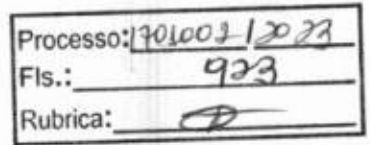 Processo: 1701002 / 2023
Fls.: 923
Rubrica: